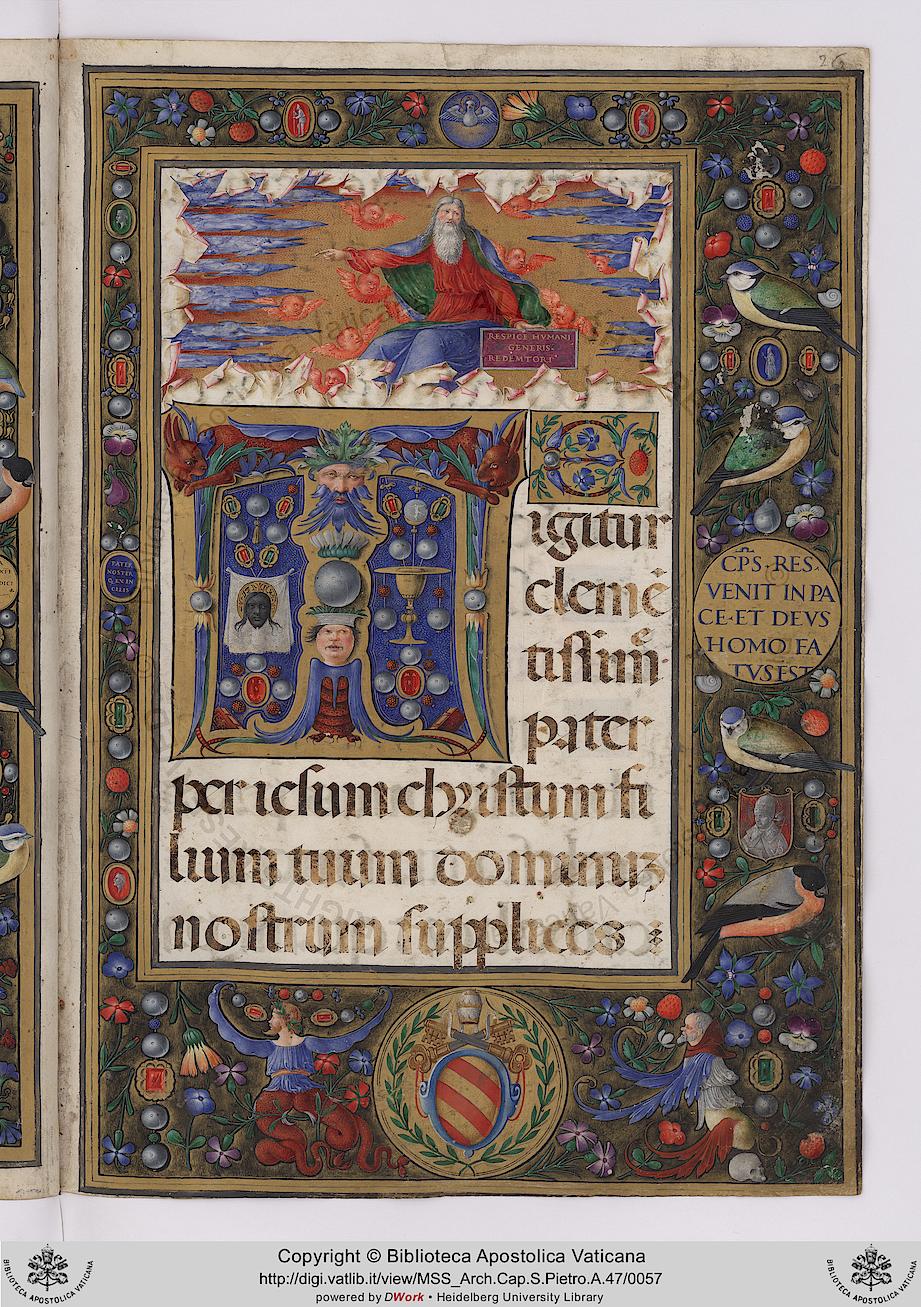 26
RESPICE HVMANI
GENERIS·
REDEMTORI
TE
igitur
clemē
tissim
pater
per iesum christum fi
lium tuum dominuz
nostrum supplices :
PATER
NOSTER
CELIS
CPS·RES·
VENIT IN PA
CE·ET DEVS
HOMO FA
TVS EST
Copyright © Biblioteca Apostolica Vaticana
http://digi.vatlib.it/view/MSS_Arch.Cap.S.Pietro.A.47/0057
powered by DWork • Heidelberg University Library
BIBLIOTECA APOSTOLICA VATICANA
BIBLIOTECA APOSTOLICA VATICANA